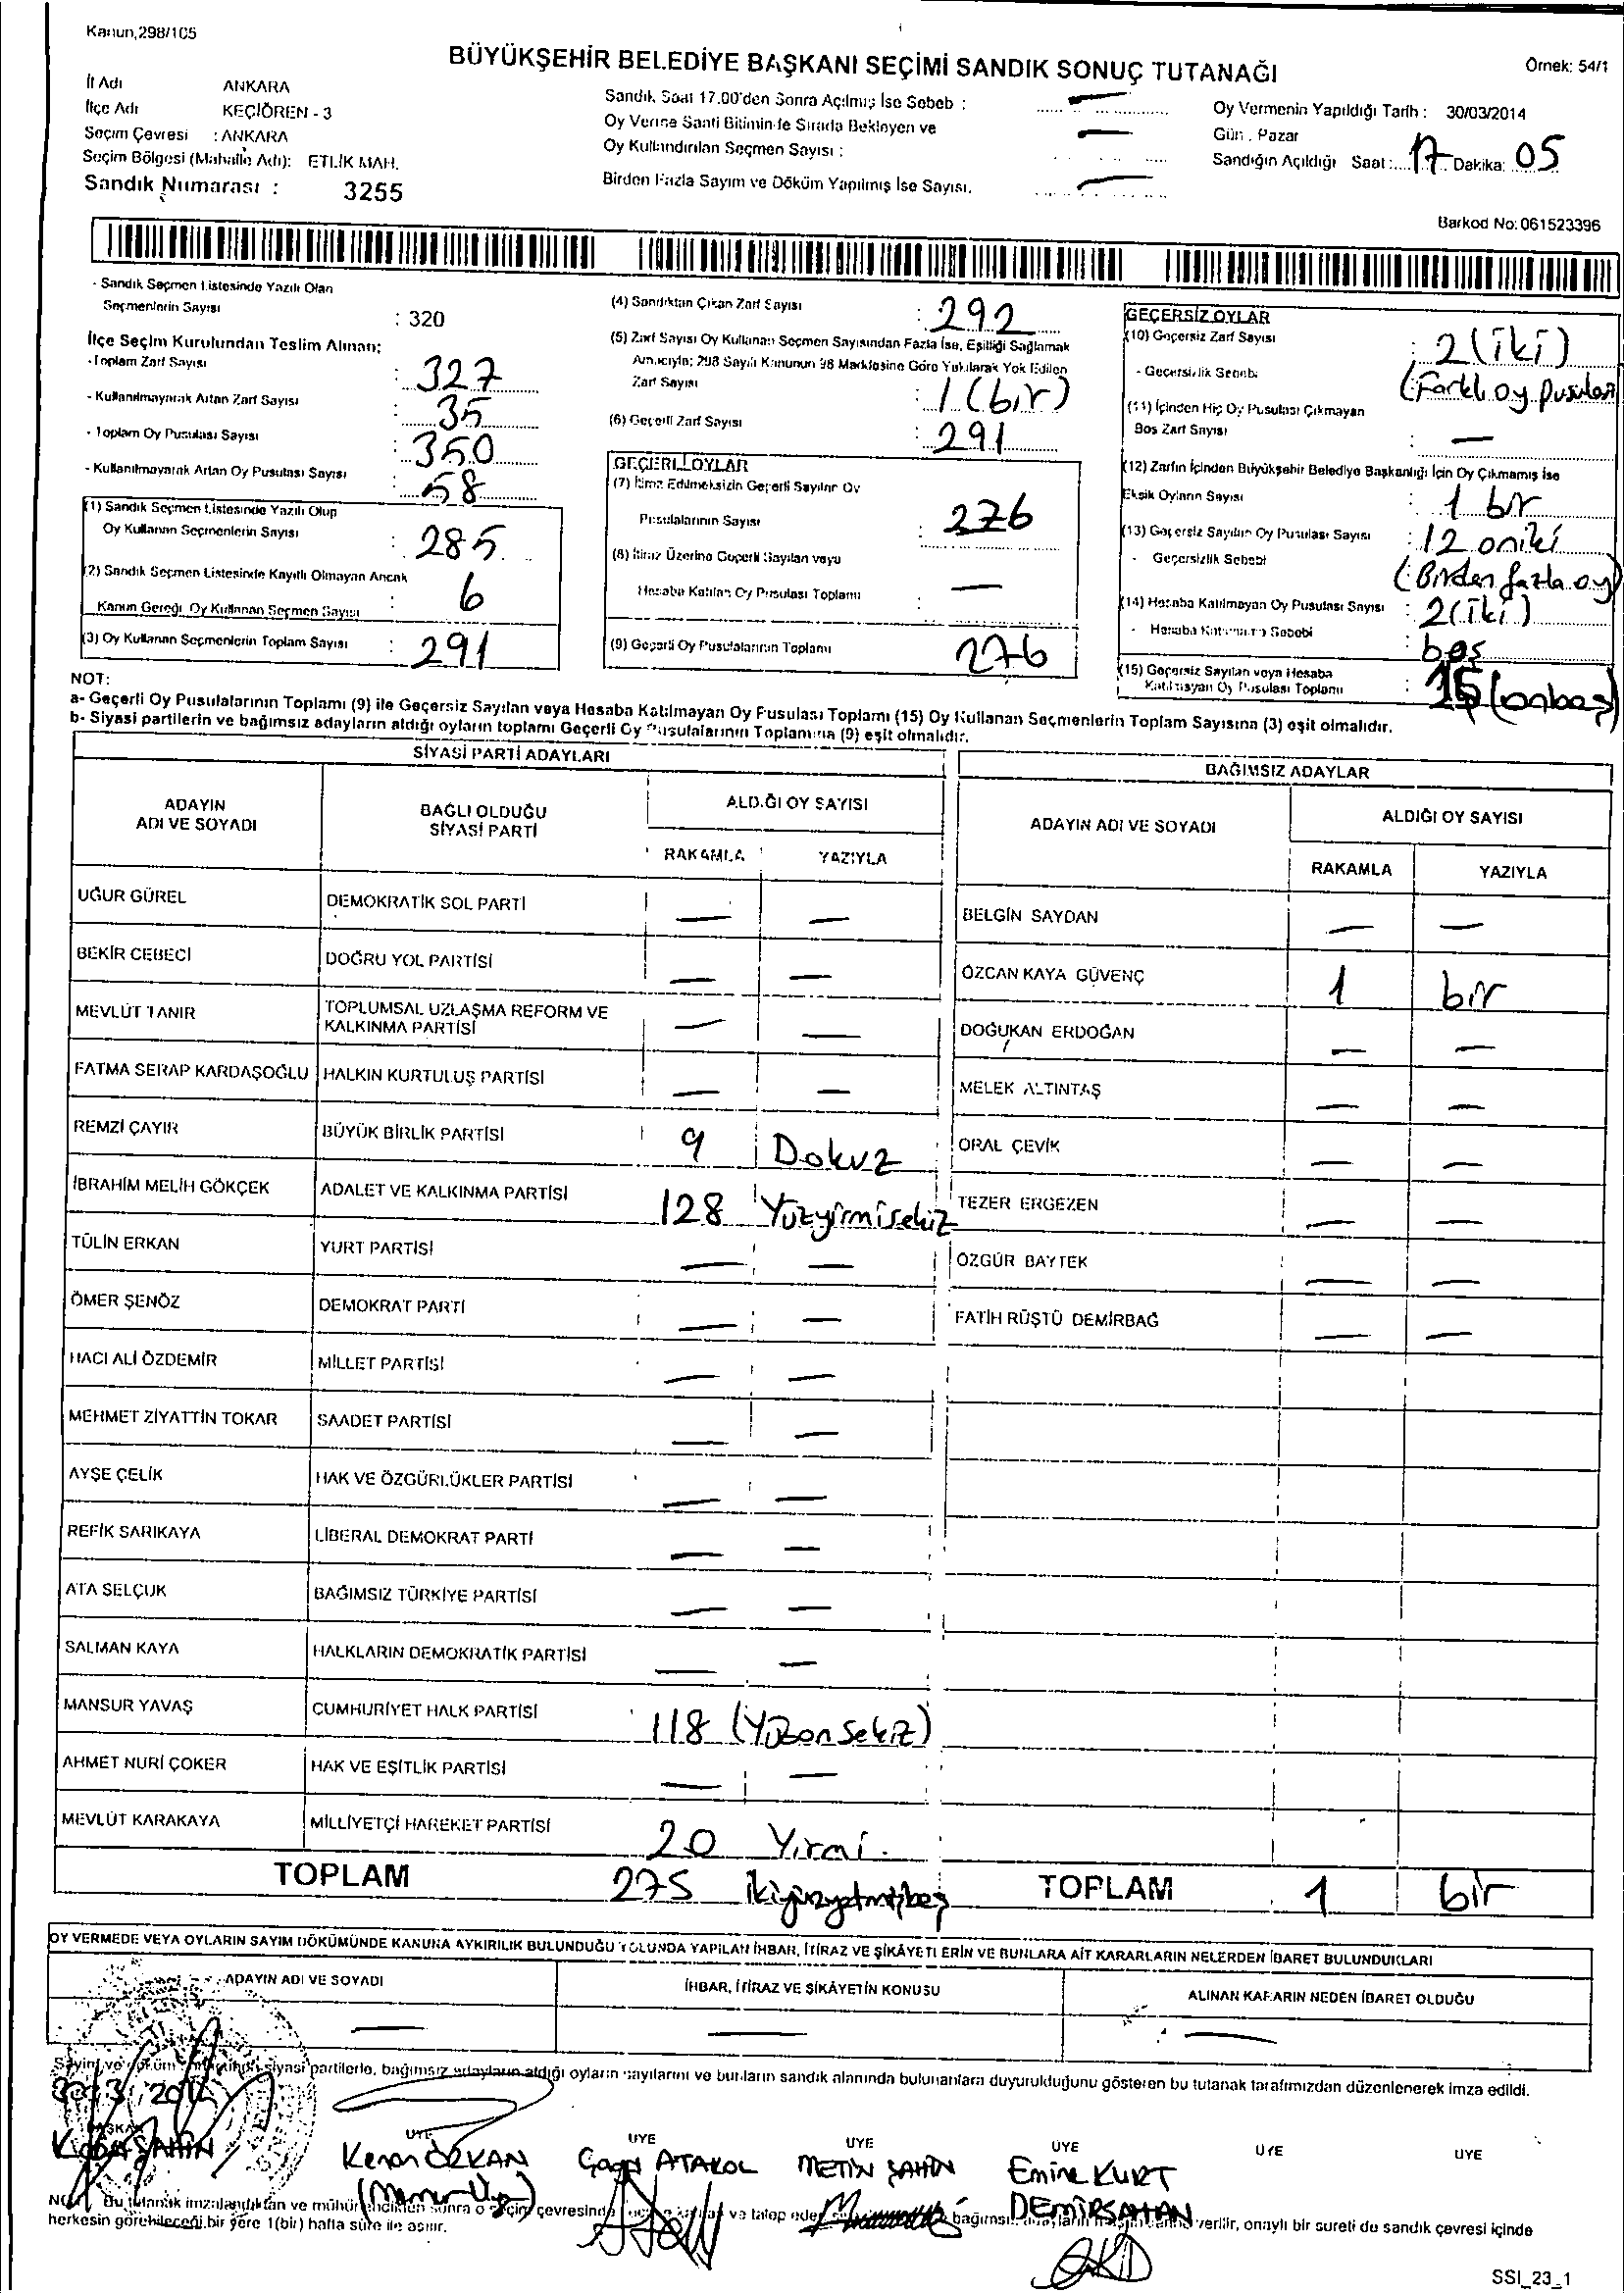 Kanun,298/105
BÜYÜKŞEHİR BELEDİYE BAŞKANI SEÇİMİ SANDIK SONUÇ TUTANAĞI
Örnek: 54/1
İl Adı ANKARA
İlçe Adı KEÇİÖREN - 3
Seçim Çevresi : ANKARA
Seçim Bölgesi (Mahalle Adı): ETLİK MAH.
Sandık Numarası : 3255
Sandık Saat 17.00'den Sonra Açılmış İse Sebeb : —
Oy Verme Saati Bitiminde Sırada Bekleyen ve
Oy Kullandırılan Seçmen Sayısı : —
Birden Fazla Sayım ve Döküm Yapılmış İse Sayısı. —
Oy Vermenin Yapıldığı Tarih : 30/03/2014
Gün . Pazar
Sandığın Açıldığı Saat : 17 Dakika: 05
Barkod No: 061523396
- Sandık Seçmen Listesinde Yazılı Olan
Seçmenlerin Sayısı : 320
İlçe Seçim Kurulundan Teslim Alınan;
- Toplam Zarf Sayısı : 327
- Kullanılmayarak Artan Zarf Sayısı : 35
- Toplam Oy Pusulası Sayısı : 350
- Kullanılmayarak Artan Oy Pusulası Sayısı : 58
(1) Sandık Seçmen Listesinde Yazılı Olup
Oy Kullanan Seçmenlerin Sayısı : 285
(2) Sandık Seçmen Listesinde Kayıtlı Olmayan Ancak
Kanun Gereği Oy Kullanan Seçmen Sayısı : 6
(3) Oy Kullanan Seçmenlerin Toplam Sayısı : 291
(4) Sandıktan Çıkan Zarf Sayısı : 292
(5) Zarf Sayısı Oy Kullanan Seçmen Sayısından Fazla İse, Eşitliği Sağlamak
Amacıyla; 298 Sayılı Kanunun 98 Maddesine Göre Yakılarak Yok Edilen
Zarf Sayısı : 1 (bir)
(6) Geçerli Zarf Sayısı : 291
GEÇERLİ OYLAR
(7) İtiraz Edilmeksizin Geçerli Sayılan Oy
Pusulalarının Sayısı : 276
(8) İtiraz Üzerine Geçerli Sayılan veya
Hesaba Katılan Oy Pusulası Toplamı : —
(9) Geçerli Oy Pusulalarının Toplamı 276
GEÇERSİZ OYLAR
(10) Geçersiz Zarf Sayısı : 2 (iki)
- Geçersizlik Sebebi : (Farklı oy pusulası
(11) İçinden Hiç Oy Pusulası Çıkmayan
Boş Zarf Sayısı : —
(12) Zarfın İçinden Büyükşehir Belediye Başkanlığı İçin Oy Çıkmamış İse
Eksik Oyların Sayısı : 1 bir
(13) Geçersiz Sayılan Oy Pusulası Sayısı : 12 oniki
- Geçersizlik Sebebi : (Birden fazla oy)
(14) Hesaba Katılmayan Oy Pusulası Sayısı : 2 (iki)
- Hesaba Katılmama Sebebi : boş
(15) Geçersiz Sayılan veya Hesaba
Katılmayan Oy Pusulası Toplamı : 15 (onbeş)
NOT:
a- Geçerli Oy Pusulalarının Toplamı (9) ile Geçersiz Sayılan veya Hesaba Katılmayan Oy Pusulası Toplamı (15) Oy Kullanan Seçmenlerin Toplam Sayısına (3) eşit olmalıdır.
b- Siyasi partilerin ve bağımsız adayların aldığı oyların toplamı Geçerli Oy Pusulalarının Toplamına (9) eşit olmalıdır.
SİYASİ PARTİ ADAYLARI
ADAYIN ADI VE SOYADI BAĞLI OLDUĞU SİYASİ PARTİ ALDIĞI OY SAYISI
RAKAMLA YAZIYLA
UĞUR GÜREL DEMOKRATİK SOL PARTİ — —
BEKİR CEBECİ DOĞRU YOL PARTİSİ — —
MEVLÜT TANIR TOPLUMSAL UZLAŞMA REFORM VE KALKINMA PARTİSİ — —
FATMA SERAP KARDAŞOĞLU HALKIN KURTULUŞ PARTİSİ — —
REMZİ ÇAYIR BÜYÜK BİRLİK PARTİSİ 9 Dokuz
İBRAHİM MELİH GÖKÇEK ADALET VE KALKINMA PARTİSİ 128 Yüzyirmisekiz
TÜLİN ERKAN YURT PARTİSİ — —
ÖMER ŞENÖZ DEMOKRAT PARTİ — —
HACI ALİ ÖZDEMİR MİLLET PARTİSİ — —
MEHMET ZİYATTİN TOKAR SAADET PARTİSİ — —
AYŞE ÇELİK HAK VE ÖZGÜRLÜKLER PARTİSİ — —
REFİK SARIKAYA LİBERAL DEMOKRAT PARTİ — —
ATA SELÇUK BAĞIMSIZ TÜRKİYE PARTİSİ — —
SALMAN KAYA HALKLARIN DEMOKRATİK PARTİSİ — —
MANSUR YAVAŞ CUMHURİYET HALK PARTİSİ 118 (Yüzonsekiz)
AHMET NURİ ÇOKER HAK VE EŞİTLİK PARTİSİ — —
MEVLÜT KARAKAYA MİLLİYETÇİ HAREKET PARTİSİ 20 Yirmi.
TOPLAM 275 ikiyüzyetmişbeş
BAĞIMSIZ ADAYLAR
ADAYIN ADI VE SOYADI ALDIĞI OY SAYISI
RAKAMLA YAZIYLA
BELGİN SAYDAN — —
ÖZCAN KAYA GÜVENÇ 1 bir
DOĞUKAN ERDOĞAN — —
MELEK ALTINTAŞ — —
ORAL ÇEVİK — —
TEZER ERGEZEN — —
ÖZGÜR BAYTEK — —
FATİH RÜŞTÜ DEMİRBAĞ — —
TOPLAM 1 bir
OY VERMEDE VEYA OYLARIN SAYIM DÖKÜMÜNDE KANUNA AYKIRILIK BULUNDUĞU YOLUNDA YAPILAN İHBAR, İTİRAZ VE ŞİKÂYETLERİN VE BUNLARA AİT KARARLARIN NELERDEN İBARET BULUNDUKLARI
ADAYIN ADI VE SOYADI İHBAR, İTİRAZ VE ŞİKÂYETİN KONUSU ALINAN KARARIN NEDEN İBARET OLDUĞU
— — —
Sayım ve döküm siyasi partilerle, bağımsız adayların aldığı oyların sayılarını ve bunların sandık alanında bulunanlara duyurulduğunu gösteren bu tutanak tarafımızdan düzenlenerek imza edildi.
BAŞKAN ÜYE ÜYE ÜYE ÜYE ÜYE ÜYE
ŞAHİN Kenan ÖZKAN ATAKOL METİN ŞAHİN Emine KURT
(Memur Üye) DEMİRŞAHAN
NOT: Bu tutanak imzalandıktan ve mühürlendikten sonra o seçim çevresinde ve talep eden bağımsız verilir, onaylı bir sureti de sandık çevresi içinde
herkesin görebileceği bir yere 1(bir) hafta süre ile asılır.
SSI_23_1